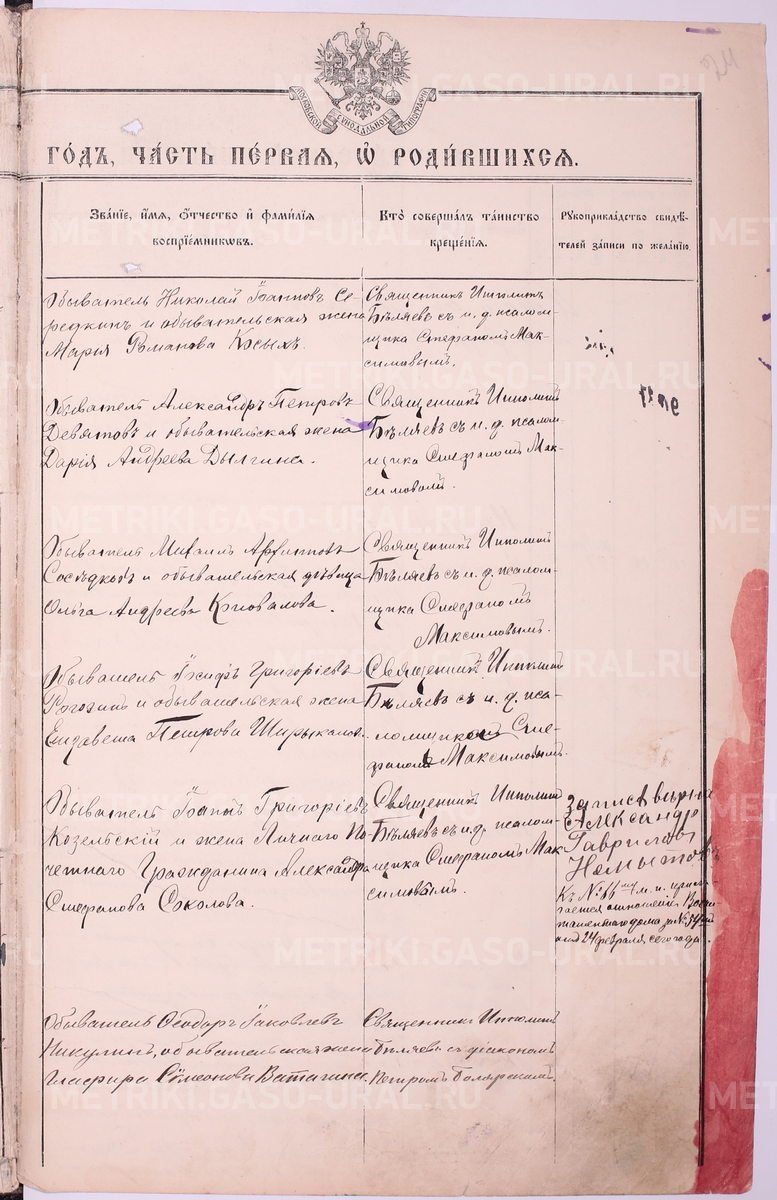 24
МОСКОВСКОЙ СѴНОДАЛЬНОЙ ТИПОГРАФІИ
ГО́ДЪ, ЧА́СТЬ ПЕ́РВАЯ, Ѡ҆ РОДИ́ВШИХСЯ.
Зва́нїе, и҆́мя, ѻ҆́тчество и҆ фами́лїя
воспрїе́мникѡвъ.
Кто̀ соверша́лъ та́инство
креще́нїя.
Рꙋкоприкла́дство свидѣ́-
телей за́писи по жела́нїю.
Обыватель Николай Іоанновъ Се-
редкинъ и обывательская жена
Марія Романова Косыхъ.
Священникъ Ипполитъ
Бѣляевъ съ и. д. псалом-
щика Стефаномъ Мак-
симовымъ.
Обыватель Александръ Петровъ
Девятовъ и обывательская жена
Дарія Андреева Дылгина.
Священникъ Ипполитъ
Бѣляевъ съ и. д. псалом-
щика Стефаномъ Мак-
симовымъ.
Обыватель Михаилъ
Сосѣдковъ и обывательская дѣвица
Ольга Андреева Коновалова.
Священникъ Ипполитъ
Бѣляевъ съ и. д. псалом-
щика Стефаномъ
Максимовымъ.
Обыватель Іосифъ Григоріевъ
Рогозинъ и обывательская жена
Елизавета Петрова Ширыкалова.
Священникъ Ипполитъ
Бѣляевъ съ и. д. пса-
ломщикомъ Сте-
фаномъ Максимовымъ.
Обыватель Іоаннъ Григоріевъ
Козельскій и жена Личнаго По-
четнаго Гражданина Александра
Стефанова Соколова.
Священникъ Ипполитъ
Бѣляевъ съ и. д. псалом-
щика Стефаномъ Мак-
симовымъ.
Запись вѣрна
Александр
Гаврилов
Немытовъ
Къ № 11 м. п. прила-
гается отношеніе Воспи-
тательнаго дома за №
отъ 24 февраля сего года.
Обыватель Ѳеодоръ Іаковлевъ
Никулинъ, обывательская жена
Глафира Сѵмеонова Ватагина.
Священникъ Ипполитъ
Бѣляевъ съ діакономъ
Петромъ Болярскимъ.
METRIKI.GASO-URAL.RU